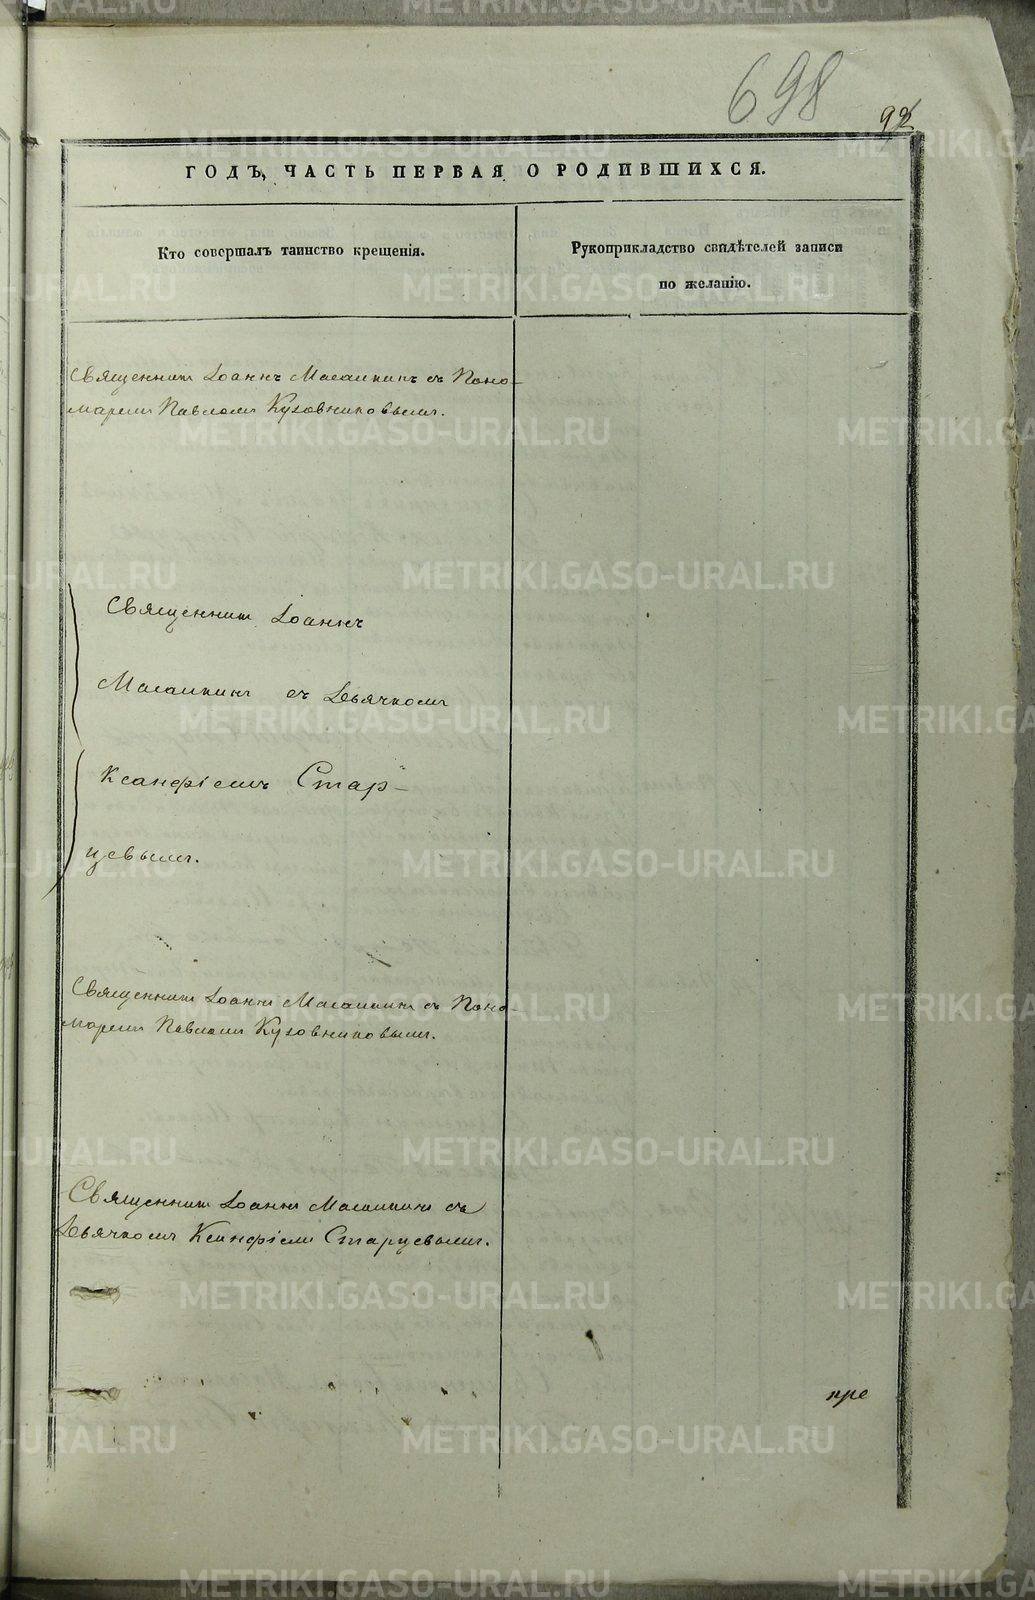 698
92
ГОДЪ, ЧАСТЬ ПЕРВАЯ О РОДИВШИХСЯ.
Кто совершалъ таинство крещенія.
Рукоприкладство свидѣтелей записи
по желанію.
Священник Іоаннъ Масалкинъ съ Поно-
марем Павлом Кузовниковым.
Священник Іоаннъ
Масалкинъ съ Дьячком
Ксанфіемъ Стар-
цевым.
Священник Іоаннъ Масалкинъ съ Поно-
марем Павлом Кузовниковым.
Священник Іоаннъ Масалкинъ съ
Дьячком Ксанфіем Старцевым.
пре
METRIKI.GASO-URAL.RU